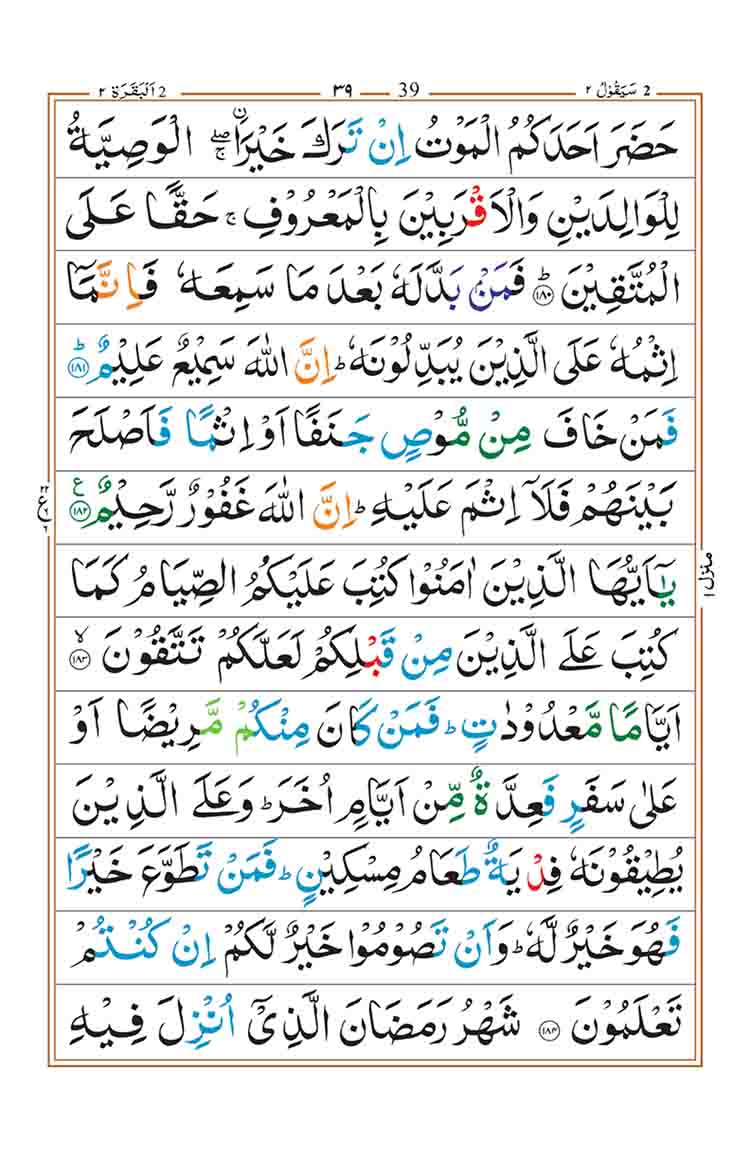 2 سَيَقُوْلُ ٢ 39 ٣٩ 2 اَلْبَقَرَة ٢
حَضَرَ اَحَدَكُمُ الْمَوْتُ اِنْ تَرَكَ خَيْرَاۨ ۖۚ الْوَصِيَّةُ
لِلْوَالِدَيْنِ وَالْاَقْرَبِيْنَ بِالْمَعْرُوْفِ ۚ حَقًّا عَلَى
الْمُتَّقِيْنَ ؕ ١٨٠ فَمَنْۢ بَدَّلَهٗ بَعْدَ مَا سَمِعَهٗ فَاِنَّمَاۤ
اِثْمُهٗ عَلَى الَّذِيْنَ يُبَدِّلُوْنَهٗ ؕ اِنَّ اللّٰهَ سَمِيْعٌ عَلِيْمٌ ؕ ١٨١
فَمَنْ خَافَ مِنْ مُّوْصٍ جَنَفًا اَوْ اِثْمًا فَاَصْلَحَ
بَيْنَهُمْ فَلَاۤ اِثْمَ عَلَيْهِ ؕ اِنَّ اللّٰهَ غَفُوْرٌ رَّحِيْمٌ ع ١٨٢
٢٢ ع ٦ ٢
يٰۤاَيُّهَا الَّذِيْنَ اٰمَنُوْا كُتِبَ عَلَيْكُمُ الصِّيَامُ كَمَا
منزل ١
كُتِبَ عَلَى الَّذِيْنَ مِنْ قَبْلِكُمْ لَعَلَّكُمْ تَتَّقُوْنَ ۙ ١٨٣
اَيَّامًا مَّعْدُوْدٰتٍ ؕ فَمَنْ كَانَ مِنْكُمْ مَّرِيْضًا اَوْ
عَلٰى سَفَرٍ فَعِدَّةٌ مِّنْ اَيَّامٍ اُخَرَ ؕ وَعَلَى الَّذِيْنَ
يُطِيْقُوْنَهٗ فِدْيَةٌ طَعَامُ مِسْكِيْنٍ ؕ فَمَنْ تَطَوَّعَ خَيْرًا
فَهُوَ خَيْرٌ لَّهٗ ؕ وَاَنْ تَصُوْمُوْا خَيْرٌ لَّكُمْ اِنْ كُنْتُمْ
تَعْلَمُوْنَ ١٨٤ شَهْرُ رَمَضَانَ الَّذِيْۤ اُنْزِلَ فِيْهِ